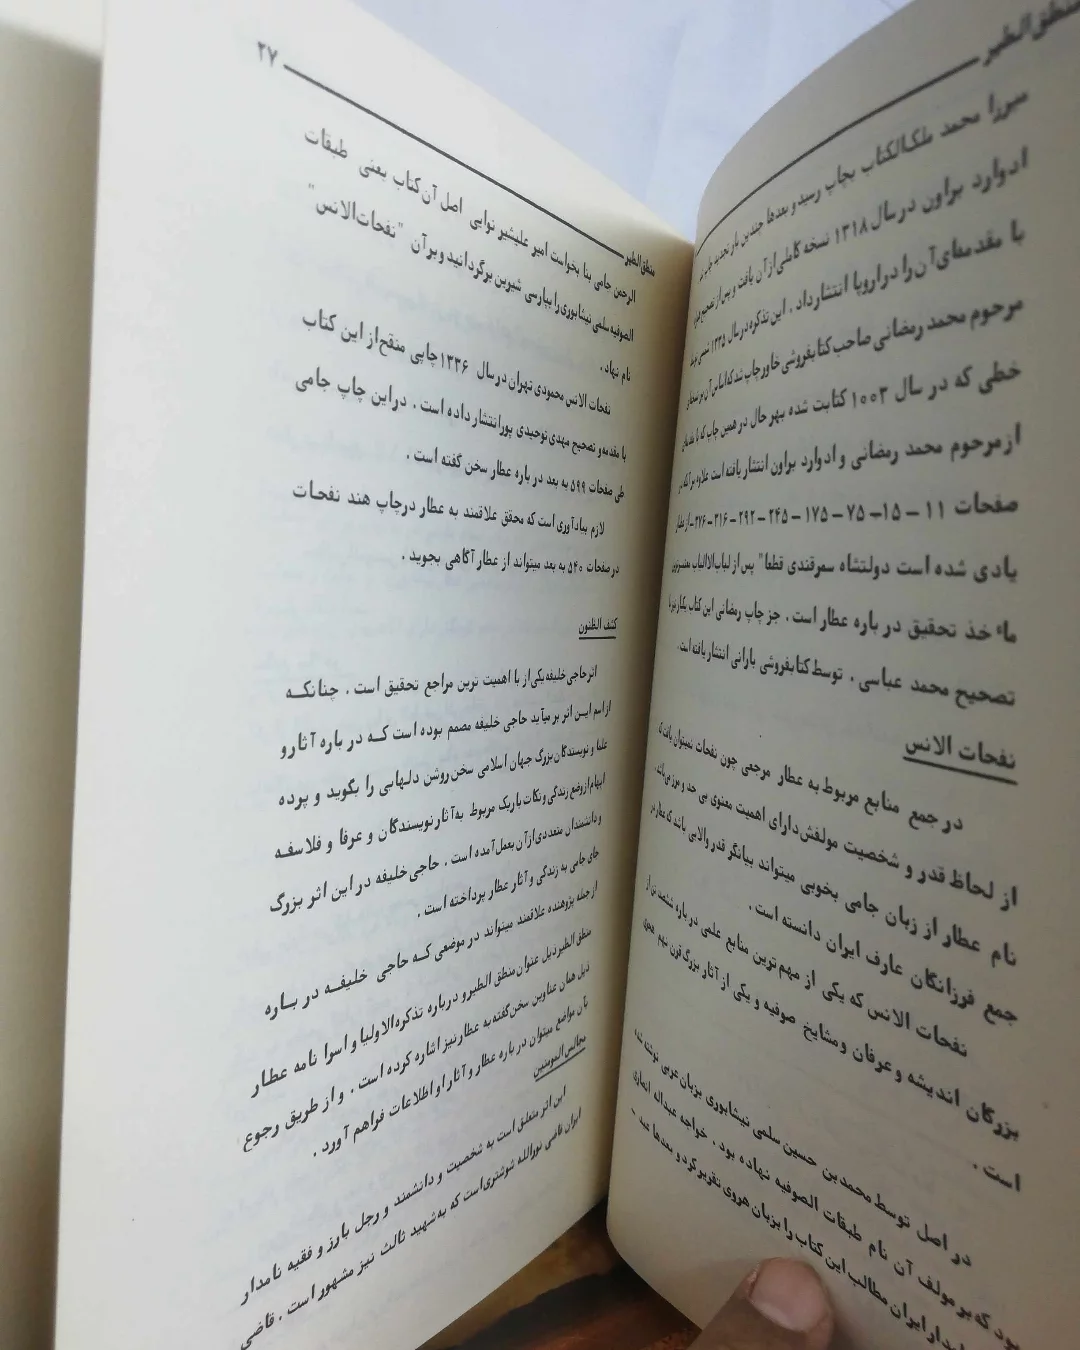 منطق‌الطیر
میرزا محمد ملک‌الکتاب بچاپ رسید و بعدها چندین بار تجدید چاپ شد
ادوارد براون در سال ۱۳۱۸ نسخه کاملی از آن یافت و پس از تصحیح
با مقدمه‌ای آن را در اروپا انتشار داد . این تذکره در سال ۱۳۳۵ شمسی توسط
مرحوم محمد رمضانی صاحب کتابفروشی خاور چاپ شد که اساس آن بر نسخه‌ای
خطی که در سال ۱۰۰۳ کتابت شده بهر حال در همین چاپ که با مقدمه‌ای
از مرحوم محمد رمضانی و ادوارد براون انتشار یافته است علاوه بر آنکه در
صفحات ۱۱ – ۱۵ – ۷۵ – ۱۷۵ – ۲۴۵ – ۲۹۲ – ۳۱۶ – ۳۷۶ – از عطار
یادی شده است دولتشاه سمرقندی قطعا" پس از لباب‌الالباب
ماء خذ تحقیق در باره عطار است . جز چاپ رمضانی این کتاب یکبار نیز با
تصحیح محمد عباسی . توسط کتابفروشی بارانی انتشار یافته است .
نفحات الانس
در جمع منابع مربوط به عطار مرجعی چون نفحات نمیتوان یافت که
از لحاظ قدر و شخصیت مولفش دارای اهمیت معنوی بی حد و مرز می‌باشد .
نام عطار از زبان جامی بخوبی میتواند بیانگر قدر والایی باشد که عطار در
جمع فرزانگان عارف ایران دانسته است .
نفحات الانس که یکی از مهم‌ترین منابع علمی در باره ششصد تن از
بزرگان اندیشه و عرفان و مشایخ صوفیه و یکی از آثار بزرگ قرن نهم هجری
است .
در اصل توسط محمد بن حسین سلمی نیشابوری بزبان عربی نوشته شده
بود که بر مولف آن نام طبقات الصوفیه نهاده بود . خواجه عبداله انصاری
ایران مطالب این کتاب را بزبان هروی تقریر کرد و بعدها عبد –
منطق‌الطیر ۲۷
الرحمن جامی بنا بخواست امیر علیشیر نوایی اصل آن کتاب یعنی طبقات
الصوفیه سلمی نیشابوری را بپارسی شیرین برگردانید و بر آن "نفحات‌الانس"
نام نهاد .
نفحات الانس محمودی تهران در سال ۱۳۳۶ چاپی منقح از این کتاب
با مقدمه و تصحیح مهدی توحیدی پور انتشار داده است . در این چاپ جامی
طی صفحات ۵۹۹ به بعد در باره عطار سخن گفته است .
لازم بیادآوری است که محقق علاقمند به عطار در چاپ هند نفحات
در صفحات ۵۴۰ به بعد میتواند از عطار آگاهی بجوید .
کشف الظنون
اثر حاجی خلیفه یکی از با اهمیت ترین مراجع تحقیق است . چنانکه
از اسم این اثر بر میآید حاجی خلیفه مصمم بوده است که در باره آثار و
علما و نویسندگان بزرگ جهان اسلامی سخن روشن دلهایی را بگوید و پرده
ابهام از وضع زندگی و نکات باریک مربوط به آثار نویسندگان و عرفا و فلاسفه
و دانشمندان متعددی از آن بعمل آمده است . حاجی خلیفه در این اثر بزرگ
جای جامی به زندگی و آثار عطار پرداخته است .
از جمله پژوهنده علاقمند میتواند در موضعی که حاجی خلیفه در باره
منطق الطیر ذیل عنوان منطق الطیر و درباره تذکره الاولیا و اسرا نامه عطار
ذیل همان عناوین سخن گفته به عطار نیز اشاره کرده است . و از طریق رجوع
بآن مواضع میتوان در باره عطار و آثار او اطلاعات فراهم آورد .
مجالس المومنین
این اثر متعلق است به شخصیت و دانشمند و رجل بارز و فقیه نامدار
ایران قاضی نورالله شوشتری است که به شهید ثالث نیز مشهور است . قاضی